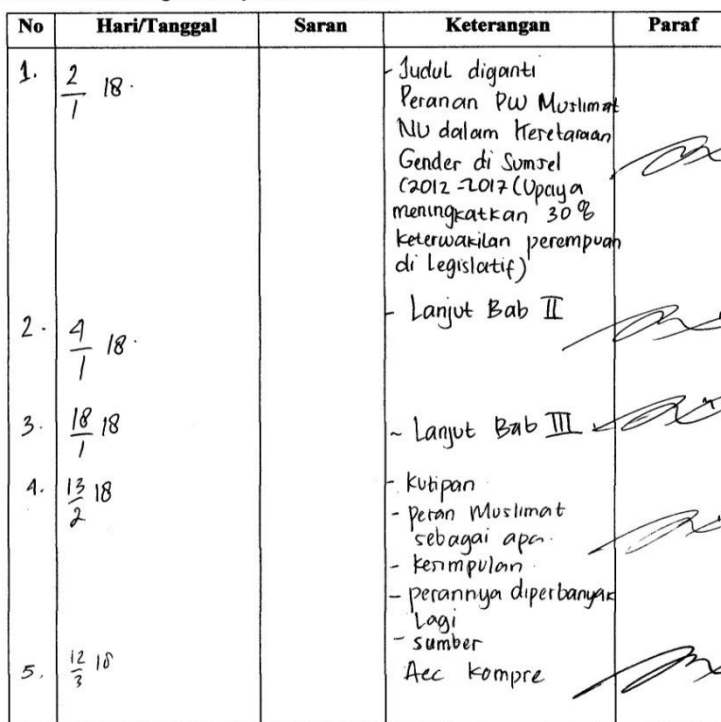 No Hari/Tanggal Saran Keterangan Paraf
1. 2/1 18. - Judul diganti
Peranan PW Muslimat
NU dalam Kesetaraan
Gender di Sumsel
(2012-2017 (Upaya
meningkatkan 30%
keterwakilan perempuan
di Legislatif)
2. 4/1 18. - Lanjut Bab II
3. 18/1 18 - Lanjut Bab III
4. 13/2 18 - Kutipan
- peran Muslimat
sebagai apa.
- kesimpulan.
- perannya diperbanyak
Lagi
- sumber
5. 12/3 18 Acc kompre